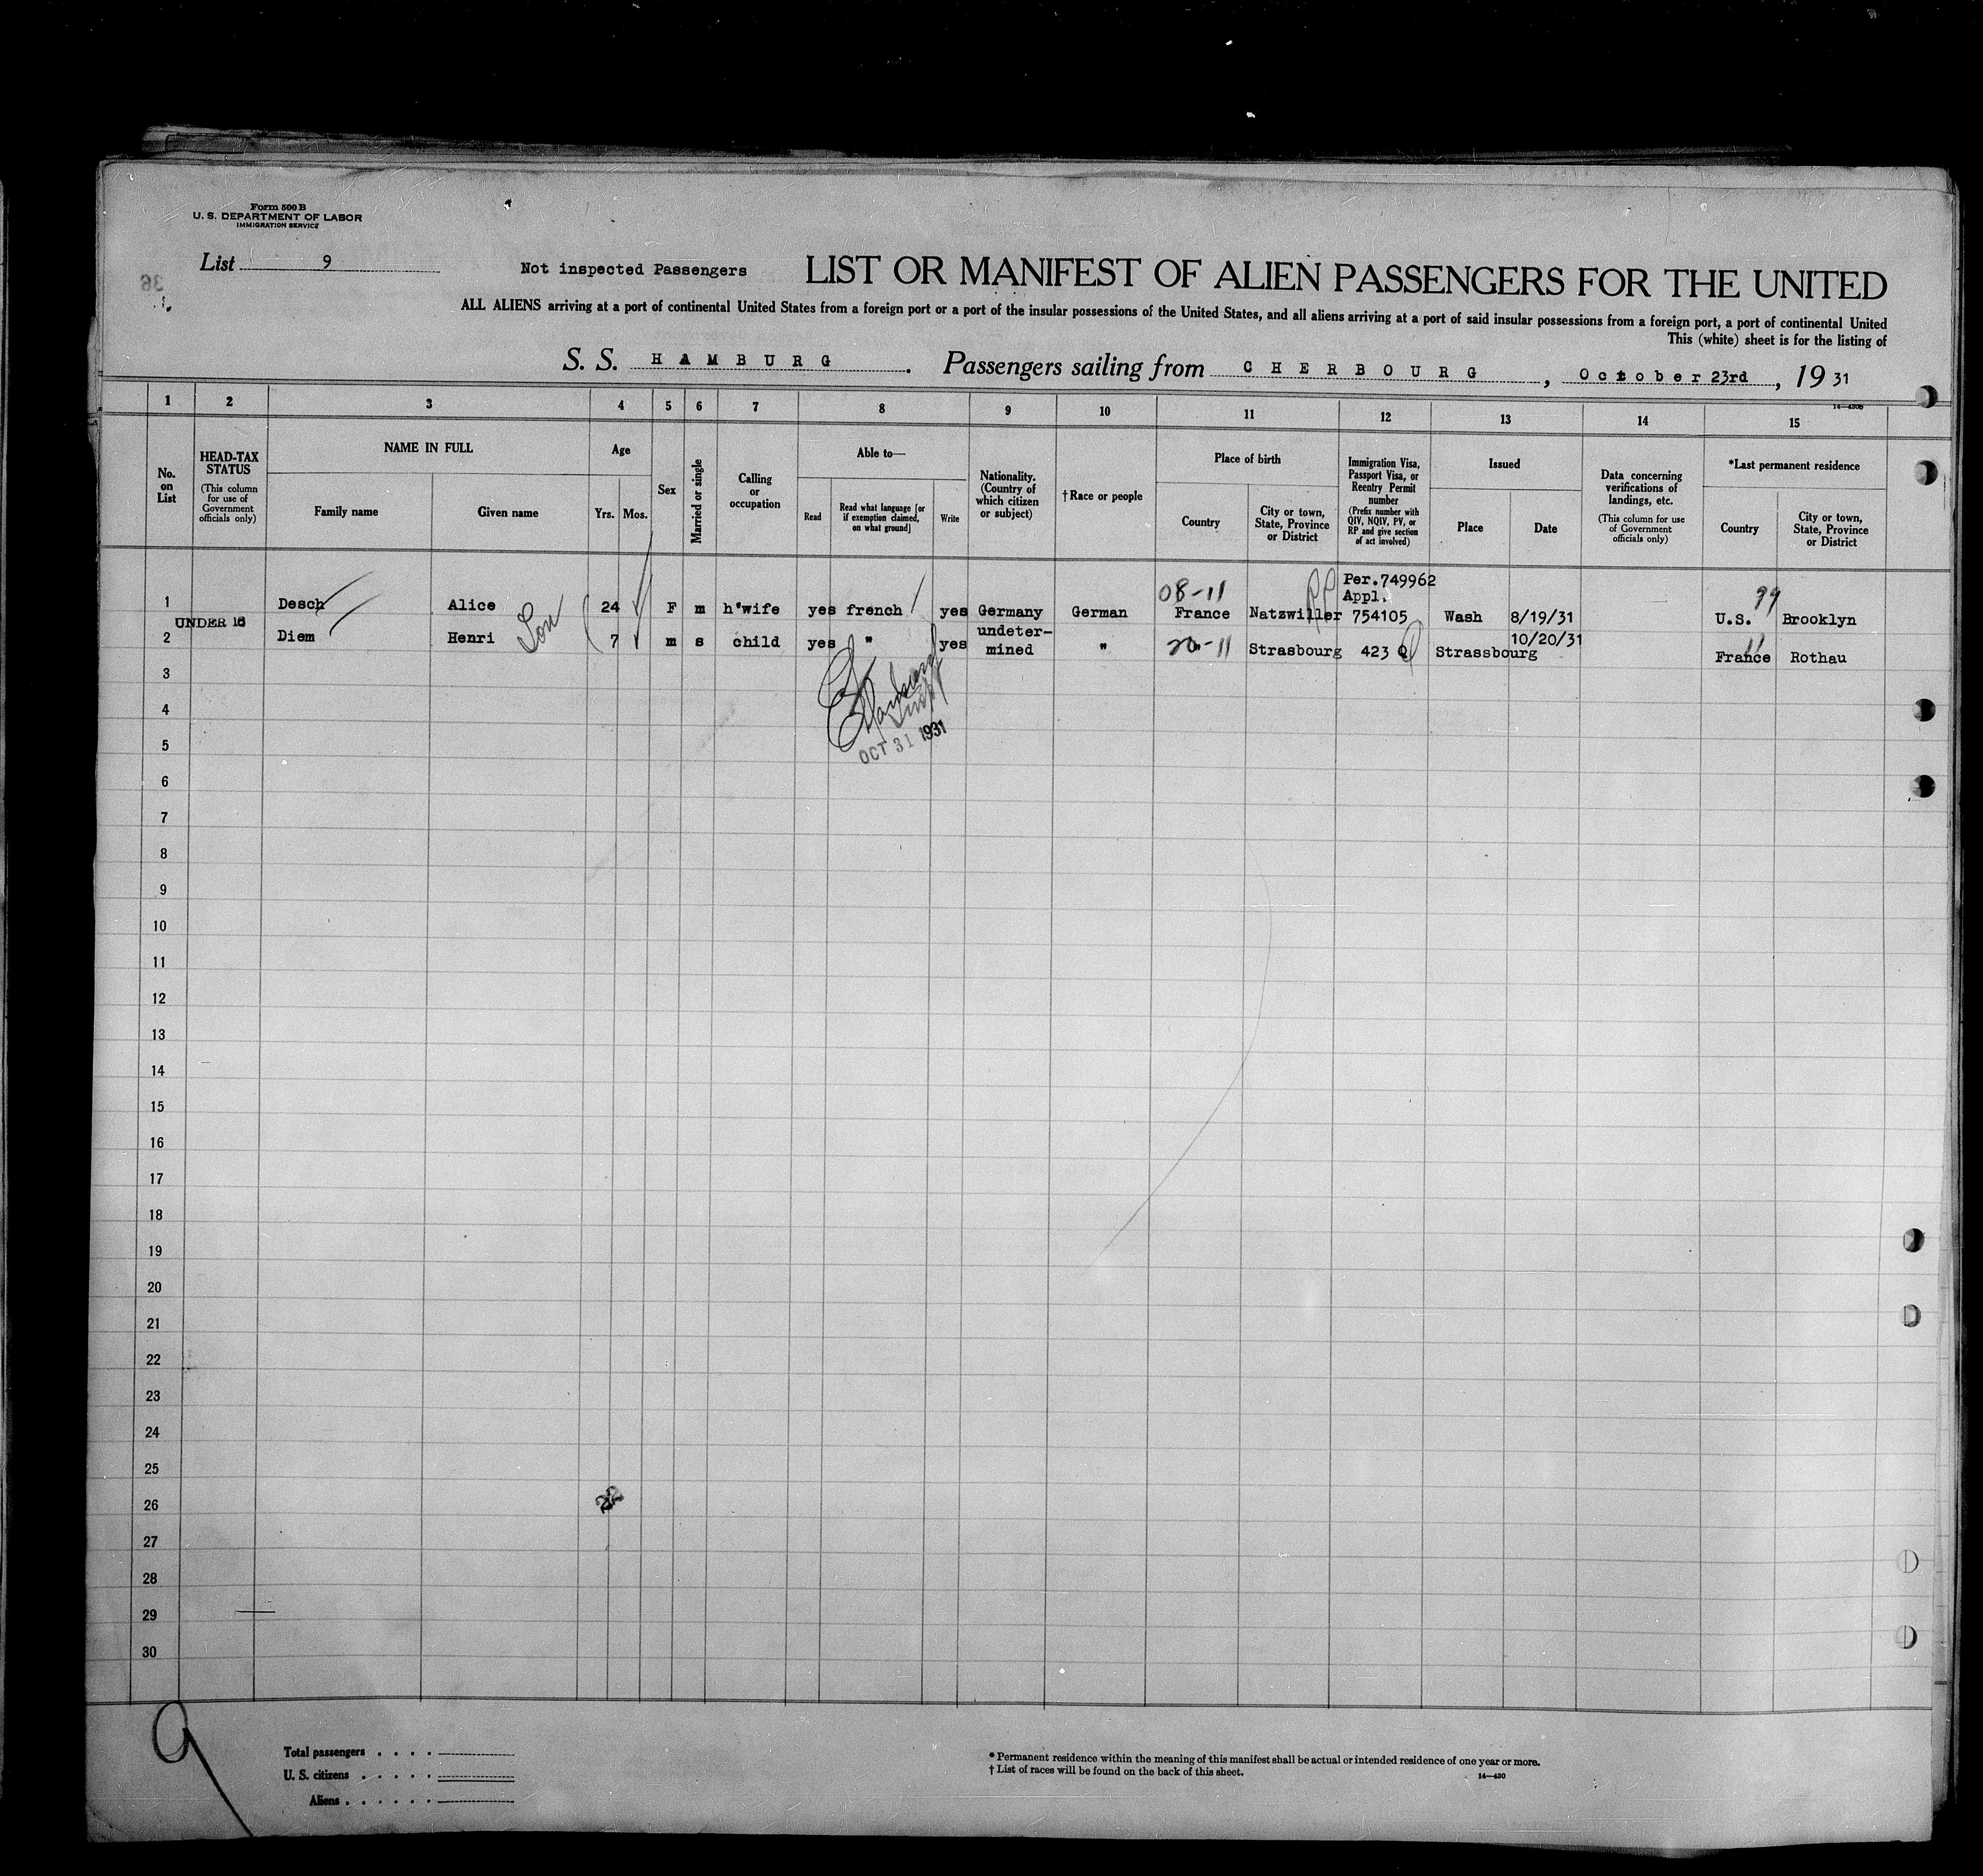 Form 500 B
U. S. DEPARTMENT OF LABOR
IMMIGRATION SERVICE
List 9
Not inspected Passengers
LIST OR MANIFEST OF ALIEN PASSENGERS FOR THE UNITED
ALL ALIENS arriving at a port of continental United States from a foreign port or a port of the insular possessions of the United States, and all aliens arriving at a port of said insular possessions from a foreign port, a port of continental United
This (white) sheet is for the listing of
S. S. HAMBURG. Passengers sailing from CHERBOURG, October 23rd, 19 31
14—430B
1 2 3 4 5 6 7 8 9 10 11 12 13 14 15
No. on List
HEAD-TAX STATUS
(This column for use of Government officials only)
NAME IN FULL
Family name
Given name
Age
Yrs. Mos.
Sex
Married or single
Calling or occupation
Able to—
Read
Read what language [or if exemption claimed, on what ground]
Write
Nationality. (Country of which citizen or subject)
† Race or people
Place of birth
Country
City or town, State, Province or District
Immigration Visa, Passport Visa, or Reentry Permit number
(Prefix number with QIV, NQIV, PV, or RP and give section of act involved)
Issued
Place
Date
Data concerning verifications of landings, etc.
(This column for use of Government officials only)
*Last permanent residence
Country
City or town, State, Province or District
08-11 Per.749962
Appl. 99
1 Desch Alice 24 F m h'wife yes french yes Germany German France Natzwiller 754105 Wash 8/19/31 U.S. Brooklyn
UNDER 16
2 Diem Henri Son 7 m s child yes " yes undetermined " -11 Strasbourg 423 Q Strassbourg 10/20/31 France Rothau
3
4
OCT 31 1931
5
6
7
8
9
10
11
12
13
14
15
16
17
18
19
20
21
22
23
24
25
26
27
28
29
30
9
Total passengers . . . .
U. S. citizens . . . . .
Aliens . . . . . .
* Permanent residence within the meaning of this manifest shall be actual or intended residence of one year or more.
† List of races will be found on the back of this sheet.
14—430